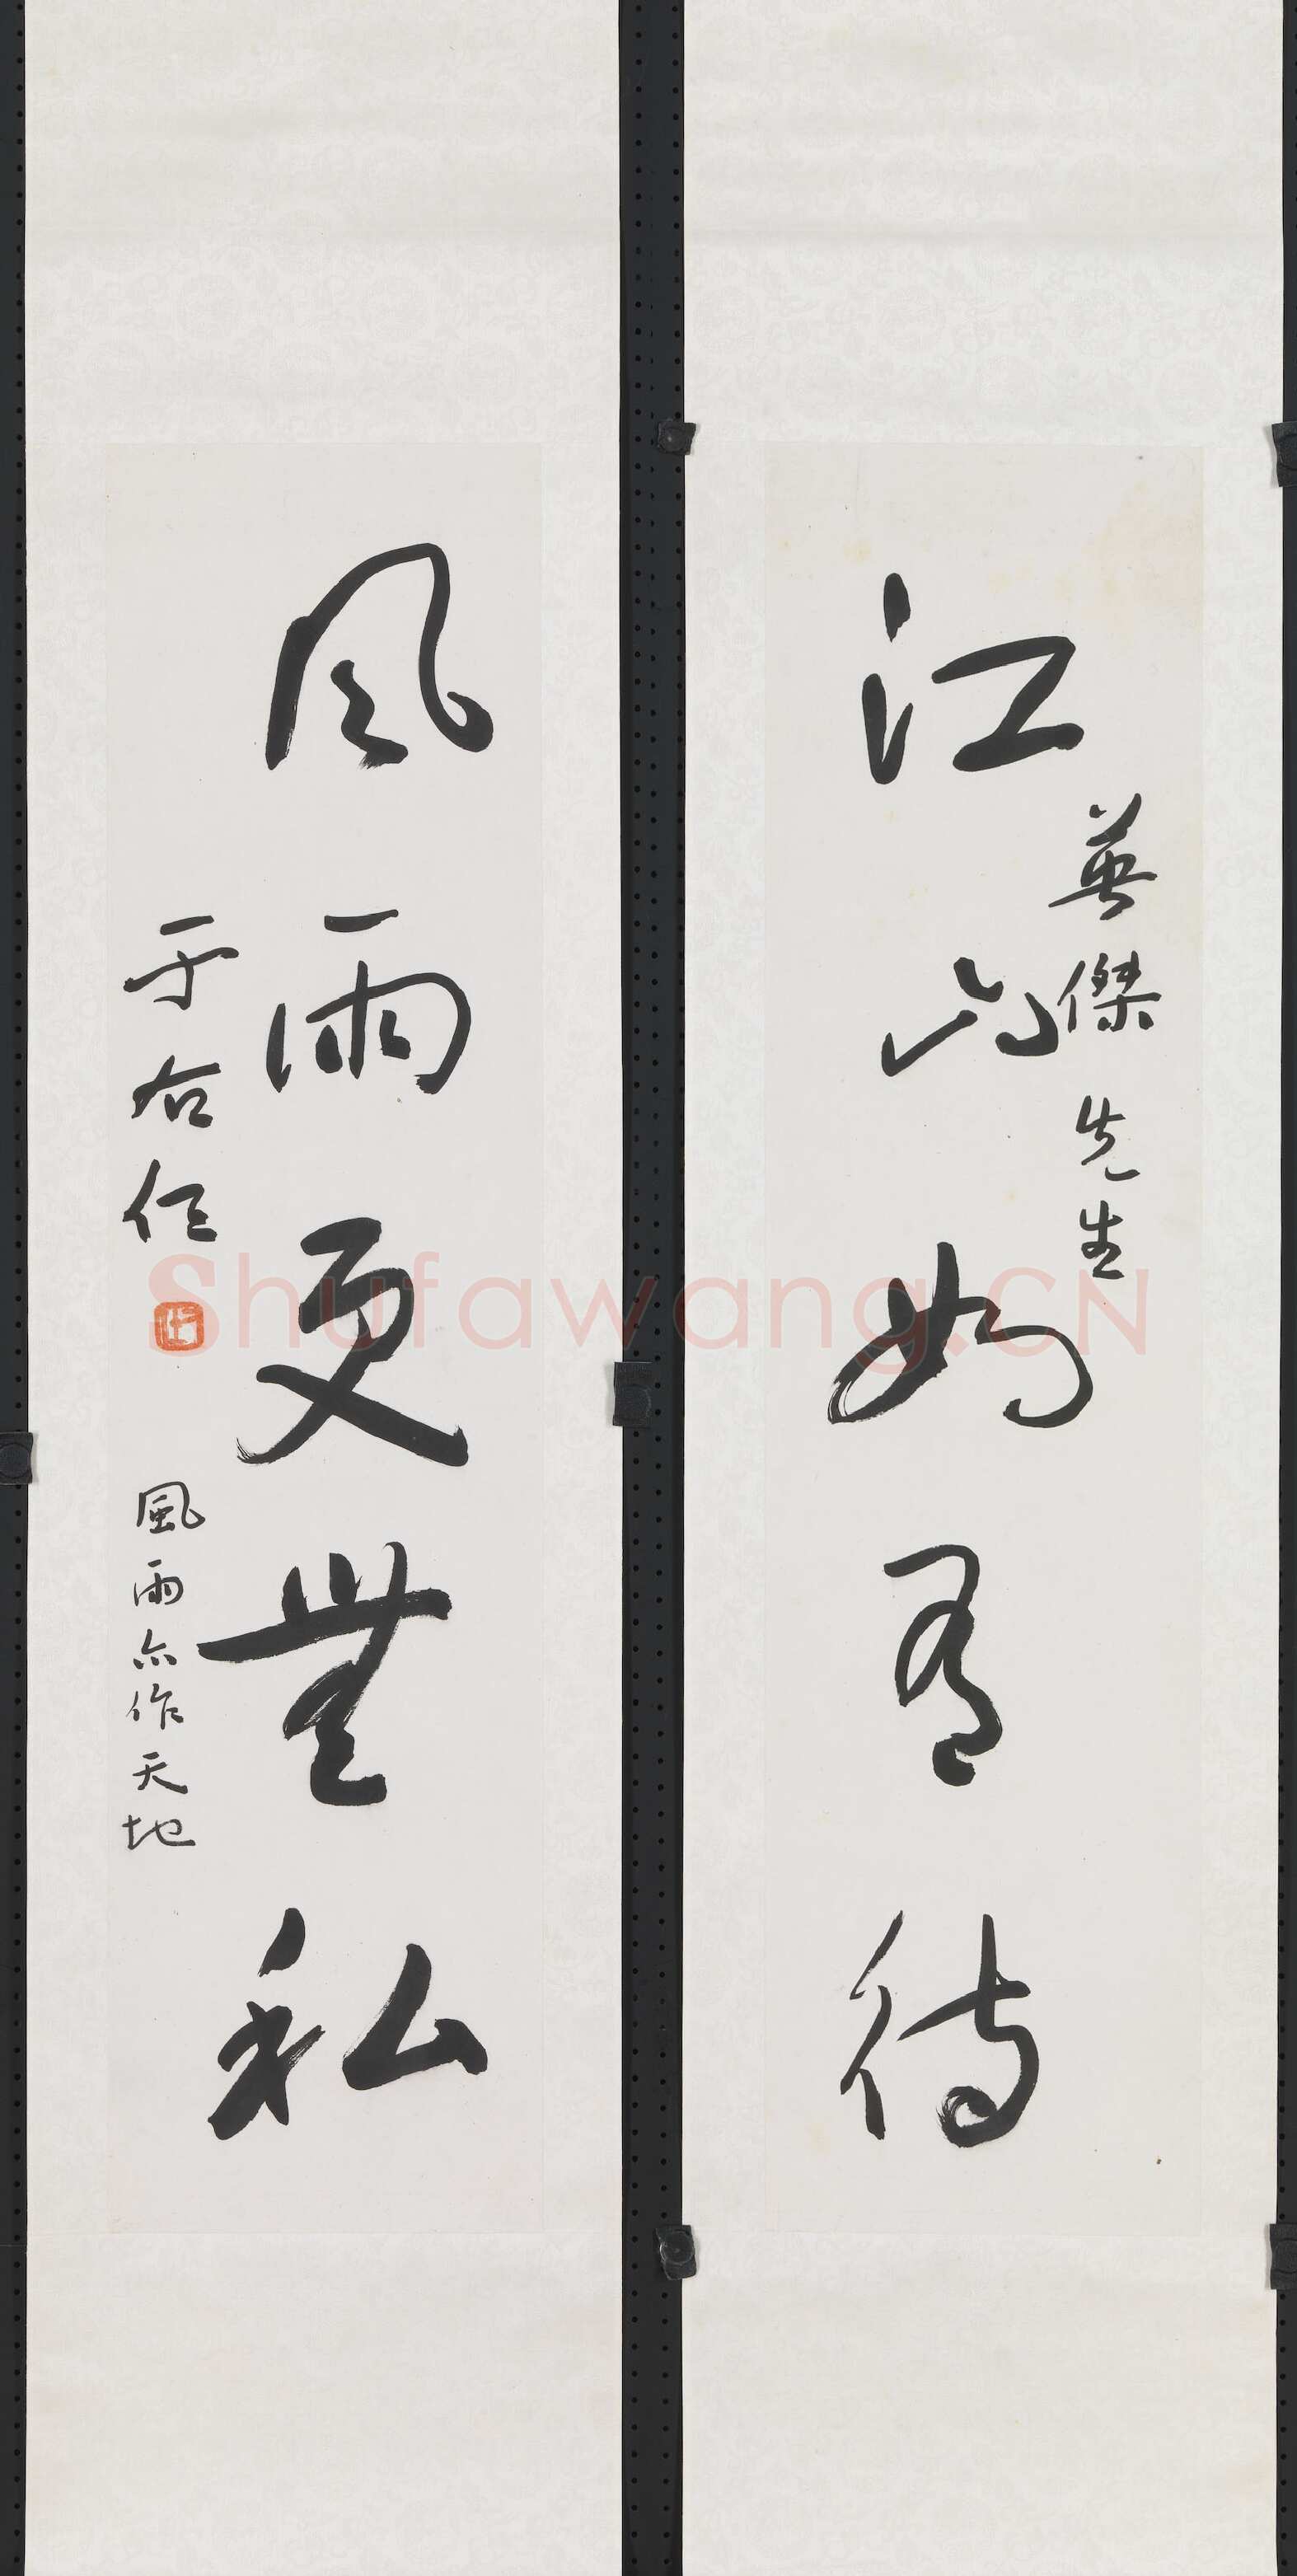 江山如有待
英傑先生
風雨更無私
于右任
風雨亦作天地
Shufawang.CN